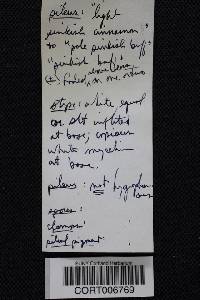 pileus: "light
pinkish cinnamon"
to "pale pinkish buff"
"pinkish buff"
stipe: white equal
or slt inflated
at base, copious
white mycelium
at base.
pileus: not hygrophan
ous
spores:
clamps:
pileal pigment
SUNY Cortland Herbarium
CORT006769